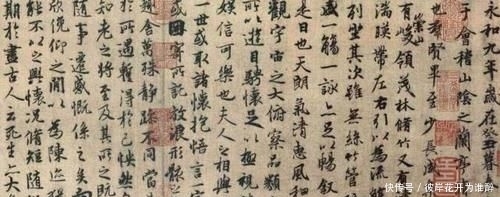 永和九年歲在癸丑暮
于會稽山陰之蘭亭
也群賢畢至少長咸
有崇山峻領茂林脩竹又有
湍暎帶左右引以為流
列坐其次雖無絲竹管
盛一觴一詠亦足以暢叙
是日也天朗氣清惠風
觀宇宙之大俯察品類
所以遊目騁懷足以極視
娛信可樂也夫人之相與
一世或取諸懷抱悟言一
或因寄所託放浪形骸
趣舍萬殊靜躁不同當
於所遇蹔得於己怏然
知老之將至及其所之既
隨事遷感慨係之矣
欣俛仰之閒以為陳迹
能不以之興懷況脩短隨
期於盡古人云死生亦大
快传号 / 彼岸花开为谁醉